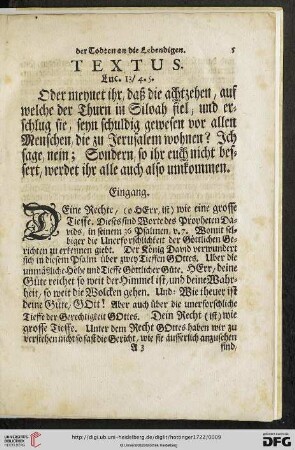 der Todten an die Lebendigen. 5
TEXTUS.
Luc. 13/ 4. 5.
Oder meynet ihr, daß die achtzehen, auf
welche der Thurn in Siloah fiel, und er-
schlug sie, seyn schuldig gewesen vor allen
Menschen, die zu Jerusalem wohnen? Ich
sage, nein; Sondern, so ihr euch nicht bes-
sert, werdet ihr alle auch also umkommen.
Eingang.
DEine Rechte, (o HErr, ist) wie eine grosse
Tieffe. Dieses sind Worte des Propheten Da-
vids, in seinem 36 Psalmen, v. 7. Womit sel-
biger die Unerforschlichkeit der Göttlichen Ge-
richten zu erkennen giebt. Der König David verwundert
sich in diesem Psalm über zwey Tieffen GOttes. Uber die
unmäßliche Höhe und Tieffe Göttlicher Güte. HErr, deine
Güte reichet so weit der Himmel ist, und deine Wahr-
heit, so weit die Wolcken gehen. Und: Wie theuer ist
deine Güte, GOtt! Aber auch über die unerforschliche
Tieffe der Gerechtigkeit GOttes. Dein Recht (ist) wie
grosse Tieffe. Unter dem Recht GOttes haben wir zu
verstehen nicht so fast die Gericht, wie sie äusserlich anzusehen
A 3 sind,
UNIVERSITÄTS-
BIBLIOTHEK
HEIDELBERG
http://digi.ub.uni-heidelberg.de/diglit/hottinger1722/0009
© Universitätsbibliothek Heidelberg
Gefördert durch die
DFG